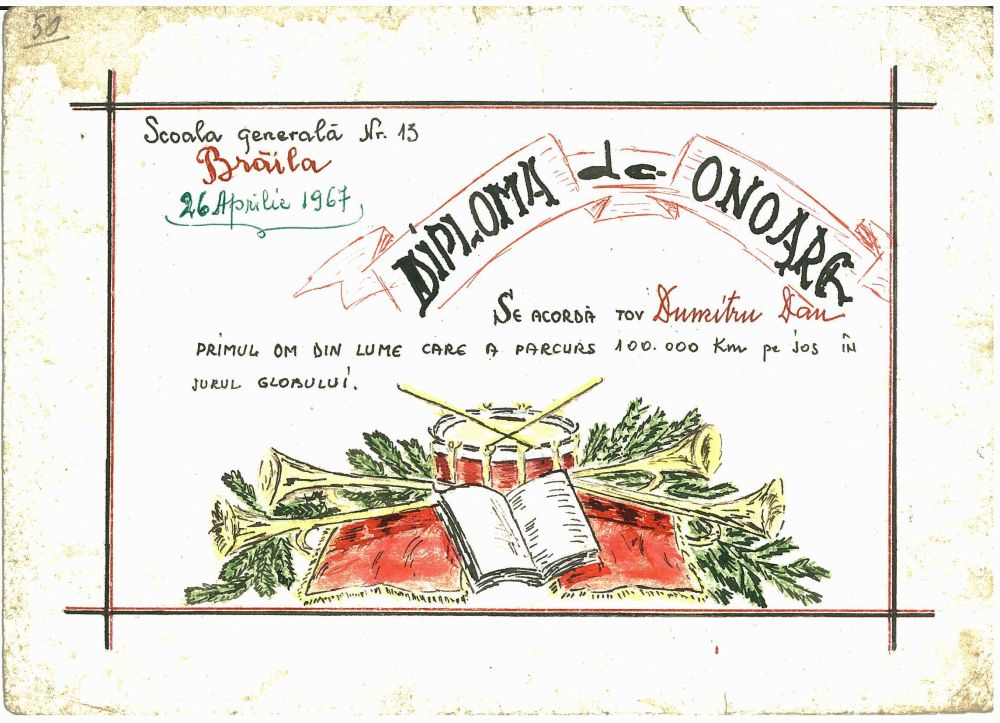 50
Scoala generală Nr. 13
Brăila
26 Aprilie 1967
DIPLOMA de ONOARE
SE ACORDĂ TOV Dumitru Dan
PRIMUL OM DIN LUME CARE A PARCURS 100.000 Km pe jos ÎN
JURUL GLOBULUI.